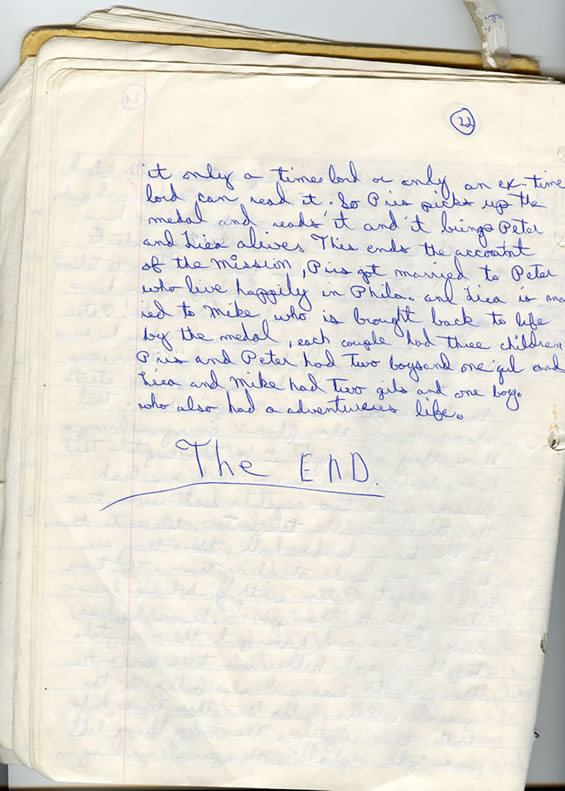 22
it only a time lord or only an ex-time
lord can read it. So Piis picks up the
medal and reads it and it brings Peter
and Liea alives This ends the accoutnt
of the mission, Piis got married to Peter
who live happily in Phila. and Liea is mar
ied to Mike, who is brought back to life
by the medal, each couple had three children
Piis and Peter had two boys and one gil and
Liea and Mike had two gils and one boy.
who also had a adventureies life.
The END.